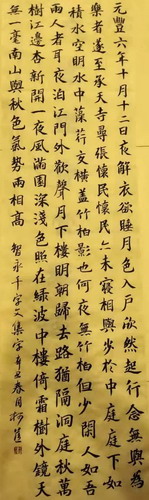 元豐六年十月十二日夜解衣欲睡月色入戶欣然起行念無與為
樂者遂至承天寺尋張懷民懷民亦未寢相與步於中庭庭下如
積水空明水中藻荇交橫蓋竹柏影也何夜無竹柏但少閑人如吾
兩人者耳夜泊江門外歡聲月下樓明朝歸去路猶隔洞庭秋萬
樹江邊杏新開一夜風滿園深淺色照在綠波中樓倚霜樹外鏡天
無一毫南山與秋色氣勢兩相高 智永千字文集字辛丑春月柯